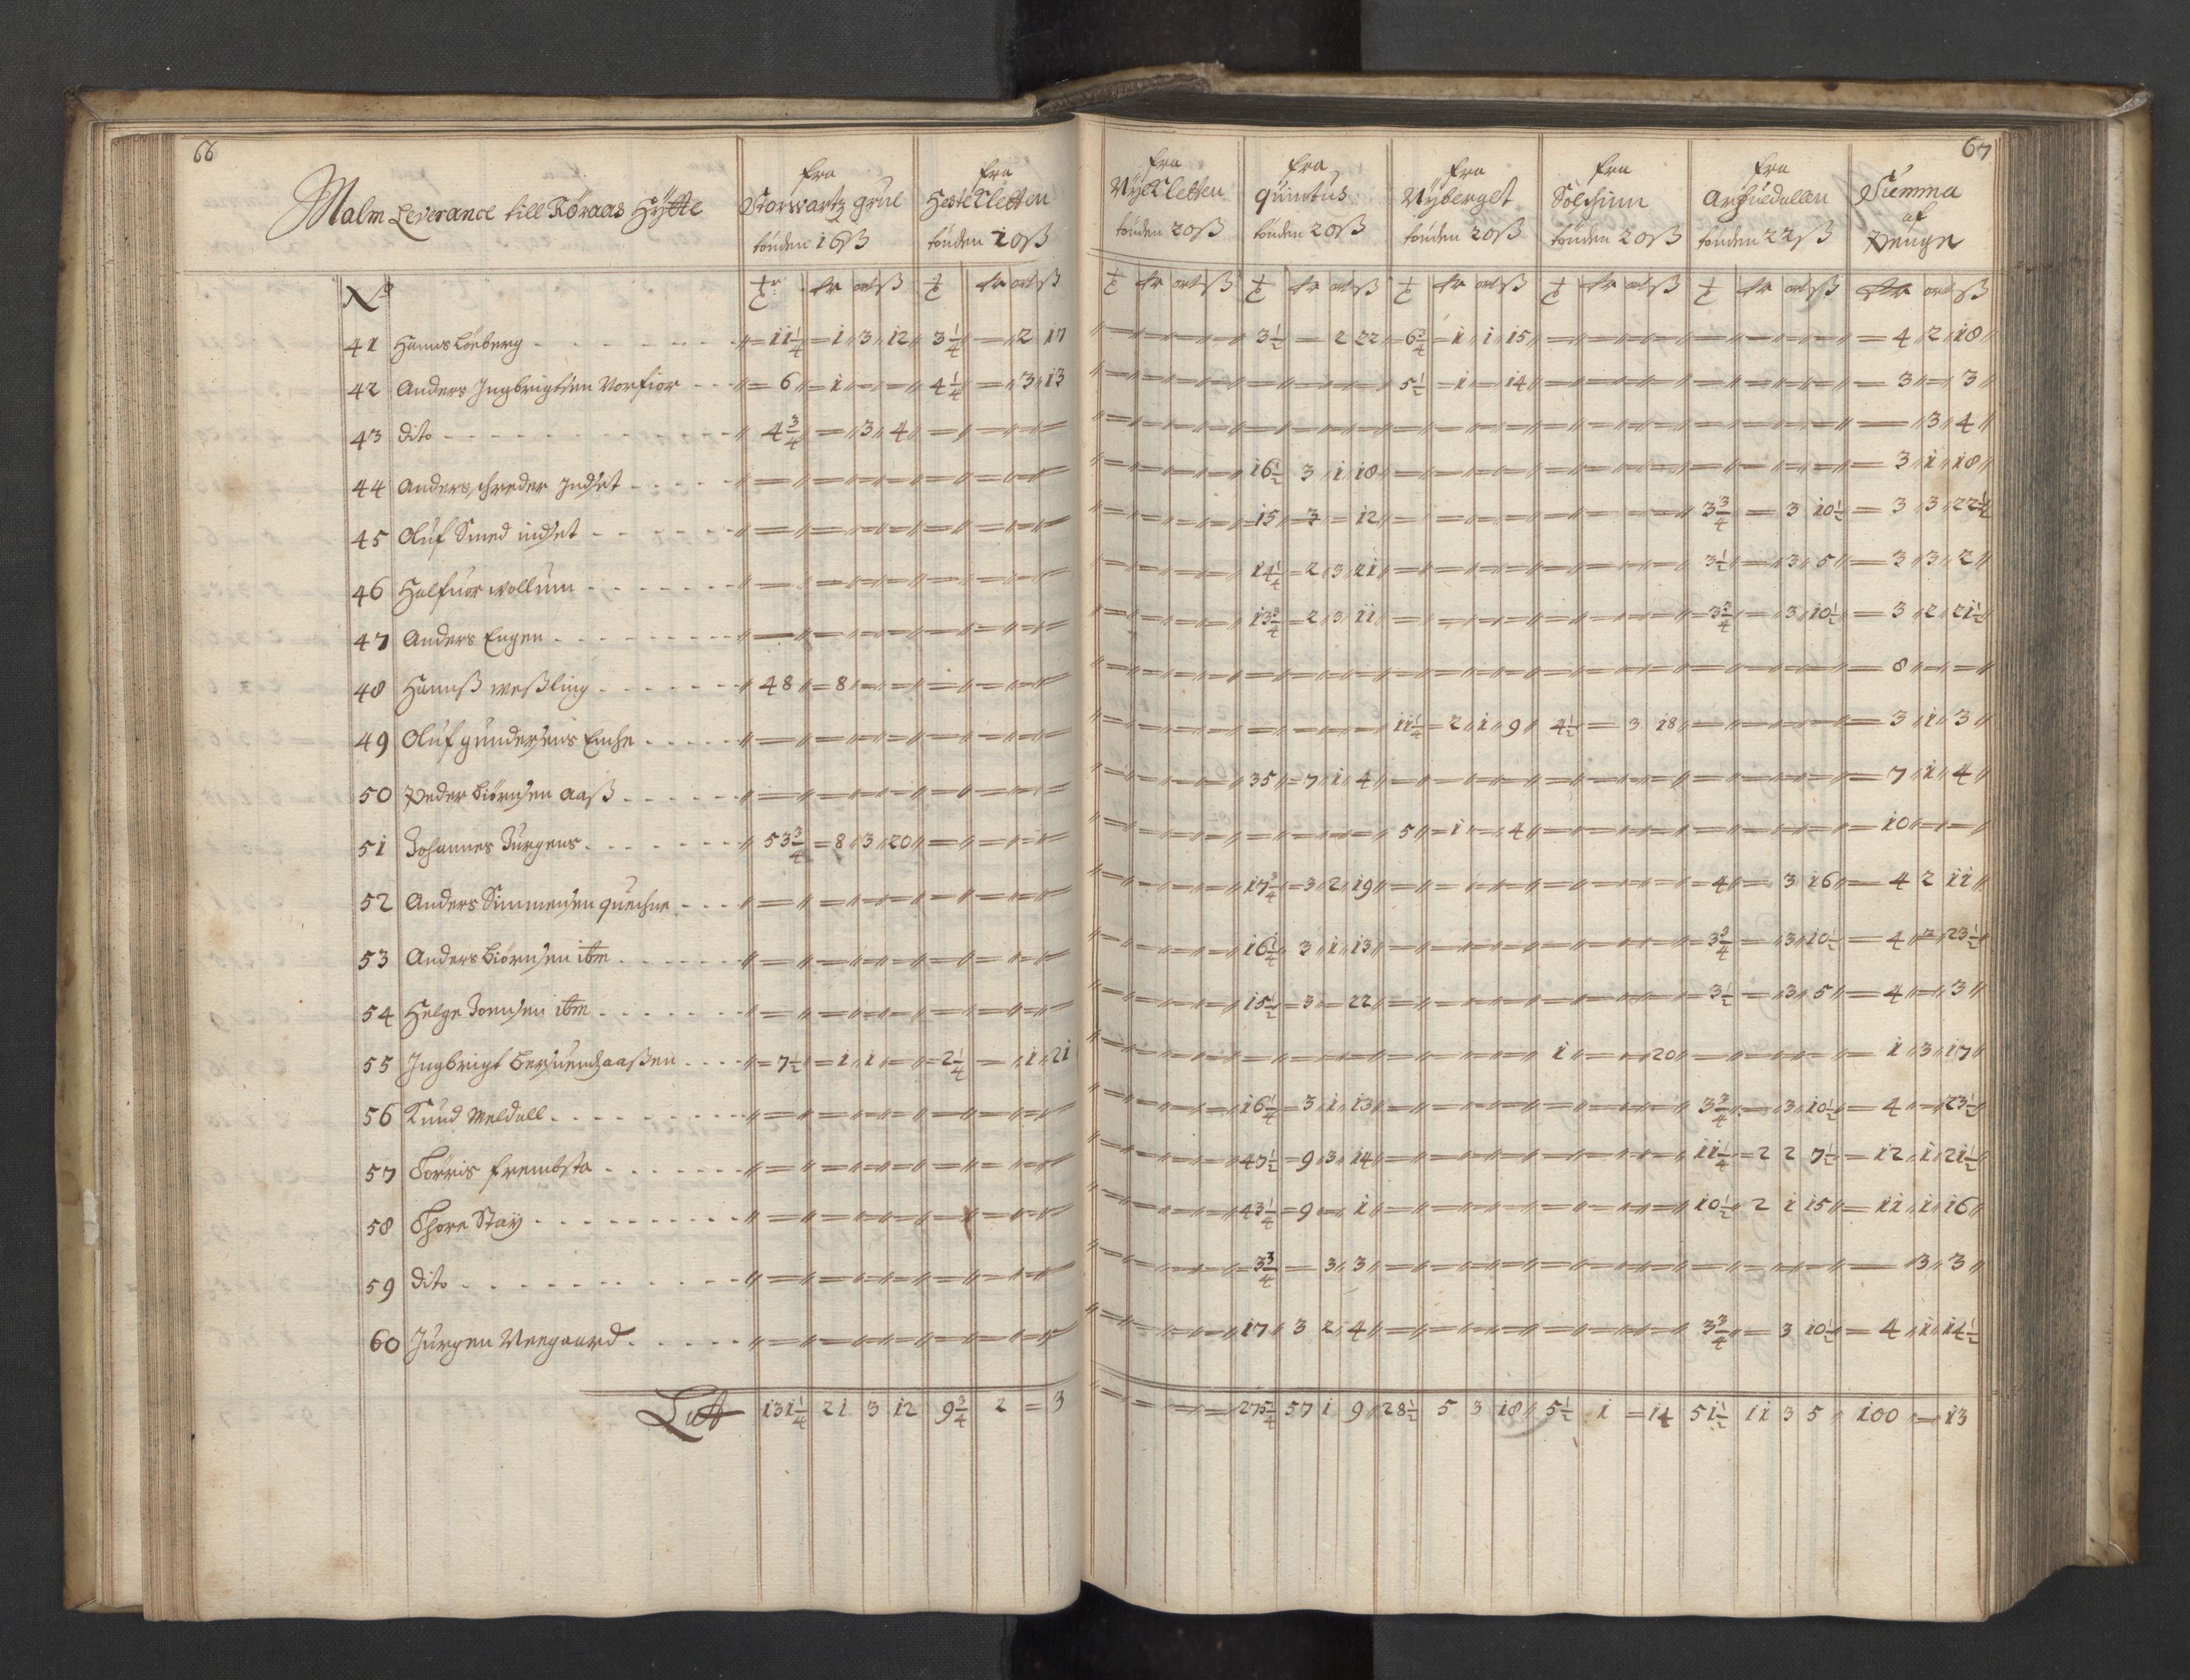 66
67
Malm Leverance till Röraas Hÿtte
fra Storwartz grue tönden 16ß
fra HesteKletten tönden 20ß
fra NÿeKletten tönden 20ß
fra quintus tönden 20ß
fra Nÿberget tönden 20ß
fra Solskinn tönden 20ß
fra Arffuedallen tönden 22ß
Summa af Penge
No
41 Hanns Löeberg 11 1/4 1 3 12 3 1/4 2 17 3 1/2 2 22 6 3/4 1 1 15 4 2 18
42 Anders Ingbrigtsen Norfior 6 1 4 1/4 3 13 5 1/2 1 14 3 3
43 dito 4 3/4 3 4 3 4
44 Anders schreder Indset 16 1/2 3 1 18 3 1 18
45 Oluf Smed indset 15 3 12 3 3/4 3 10 1/2 3 3 22 1/2
46 Halfuor wollum 14 1/4 2 3 21 3 1/2 3 5 3 3 2
47 Anders Engen 13 3/4 2 3 11 3 3/4 3 10 1/2 3 2 21 1/2
48 Hannß weßling 48 8 8
49 Oluf gundersens Enche 11 1/4 2 1 9 4 1/2 3 18 3 1 3
50 Peder Biörnsen Aaß 35 7 1 4 7 1 4
51 Johannes Jurgens 53 3/4 8 3 20 5 1 4 10
52 Anders Simmensen quechne 17 3/4 3 2 19 4 3 16 4 2 11
53 Anders Biörnsen itm 16 1/4 3 1 13 3 3/4 3 10 1/2 4 23 1/2
54 Helge Joensen itm 15 1/2 3 22 3 1/2 3 5 4 3
55 Ingbrigt aaßen 7 1/2 1 1 2 1/4 1 21 1 20 1 3 17
56 Knud Meldall 16 1/4 3 1 13 3 3/4 3 10 1/2 4 23 1/2
57 Torris frembsta 47 1/2 9 3 14 11 1/4 2 2 7 1/2 12 1 21 1/2
58 Thore Staÿ 43 1/4 9 1 10 1/2 2 1 15 11 1 16
59 dito 3 3/4 3 3 3 3
60 Jurgen Neegaard 17 3 2 4 3 3/4 3 10 1/2 4 1 14 1/2
Lat 131 1/4 21 3 12 9 3/4 2 3 275 1/4 57 1 9 28 1/2 5 3 18 5 1/2 1 14 51 1/2 11 3 5 100 13